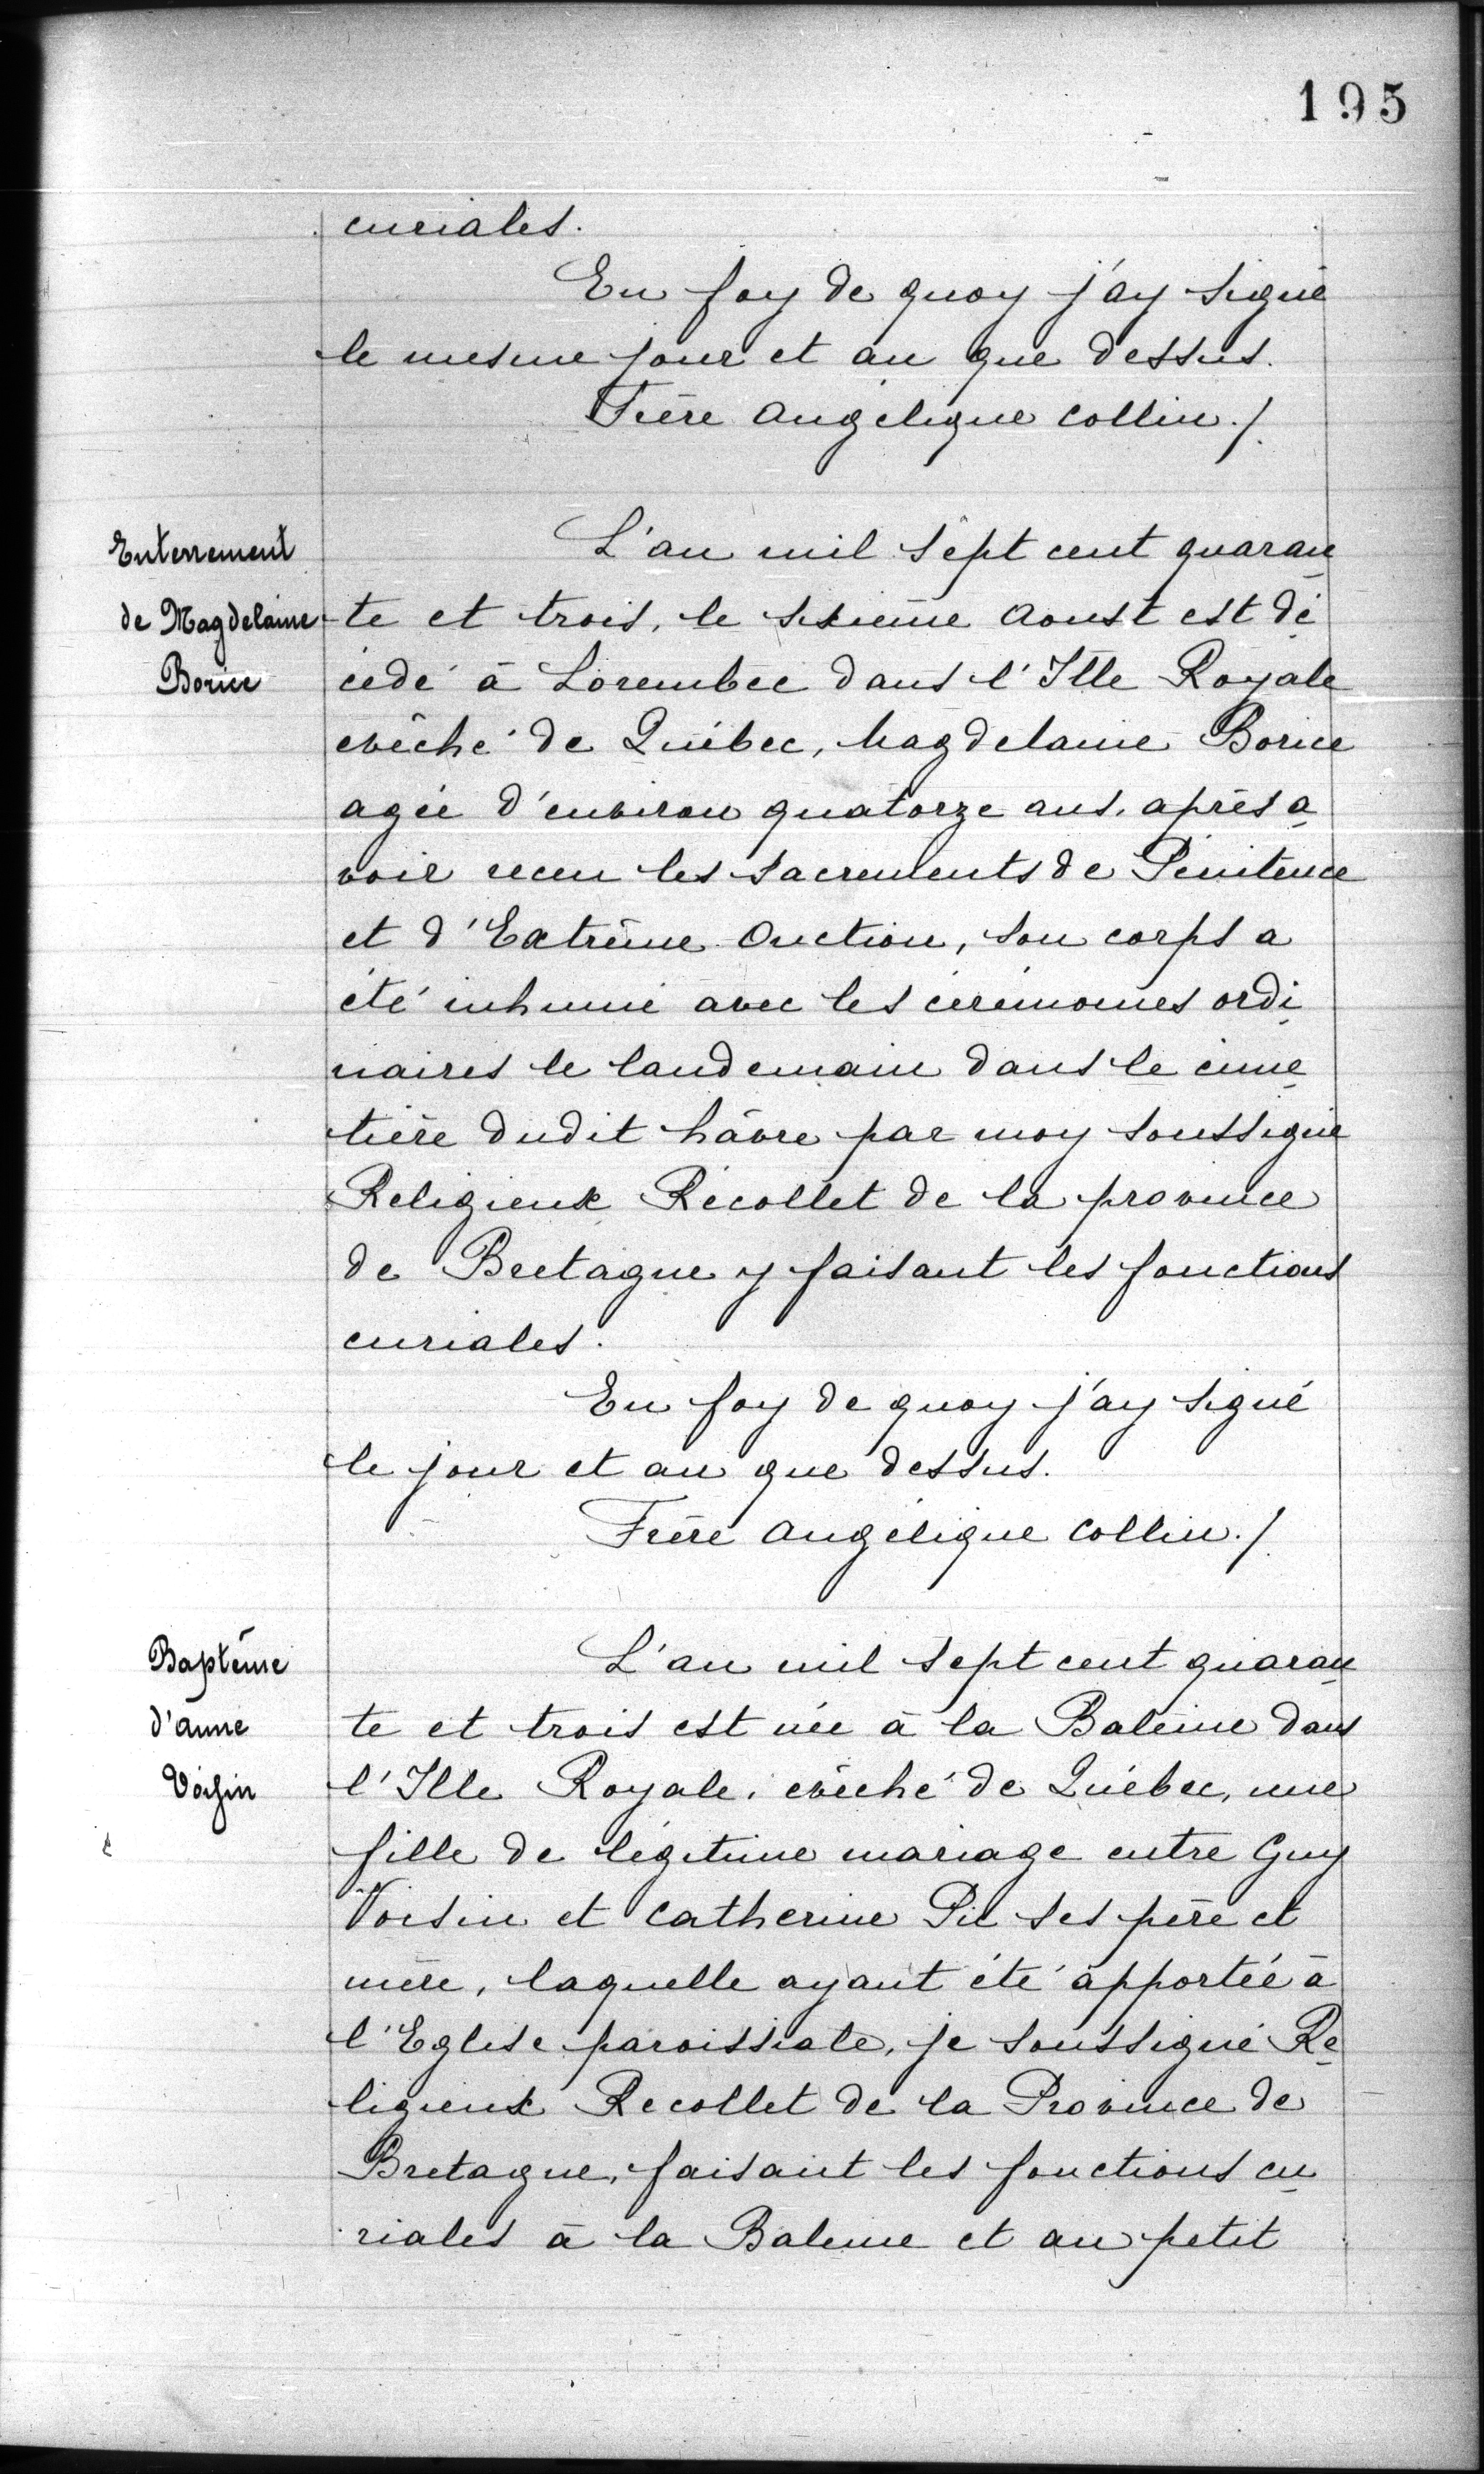 195
curiales.
En foy de quoy j'ay signé
le mesme jour et an que dessus.
Frère Angélique Collin ./.
Enterrement
de Magdelaine
Borice
L'an mil sept cent quaran
te et trois, le sixième Aoust est dé
cédé à Lorembec dans l'Ille Royale
evêché de Québec, Magdelaine Borice
agée d'environ quatorze ans, après a
voir receu les sacrements de Pénitence
et d'Extrême Onction, son corps a
été inhumé avec les cérémonies ordi
naires le landemain dans le cime
tière dudit hâvre par moy soussigné
Religieux Récollet de la province
de Bretagne y faisant les fonctions
curiales.
En foy de quoy j'ay signé
le jour et an que dessus.
Frère Angélique Collin ./.
Baptême
d'anne
Voisin
L'an mil sept cent quaran
te et trois est née à la Baleine dans
l'Ille Royale, evêché de Québec, une
fille de légitime mariage entre Guy
Voisin et Catherine Pic ses père et
mère, laquelle ayant été apportée à
l'Eglise paroissiale, je soussigné Re
ligieux Recollet de la Province de
Bretagne, faisant les fonctions cu
riales à la Baleine et au petit